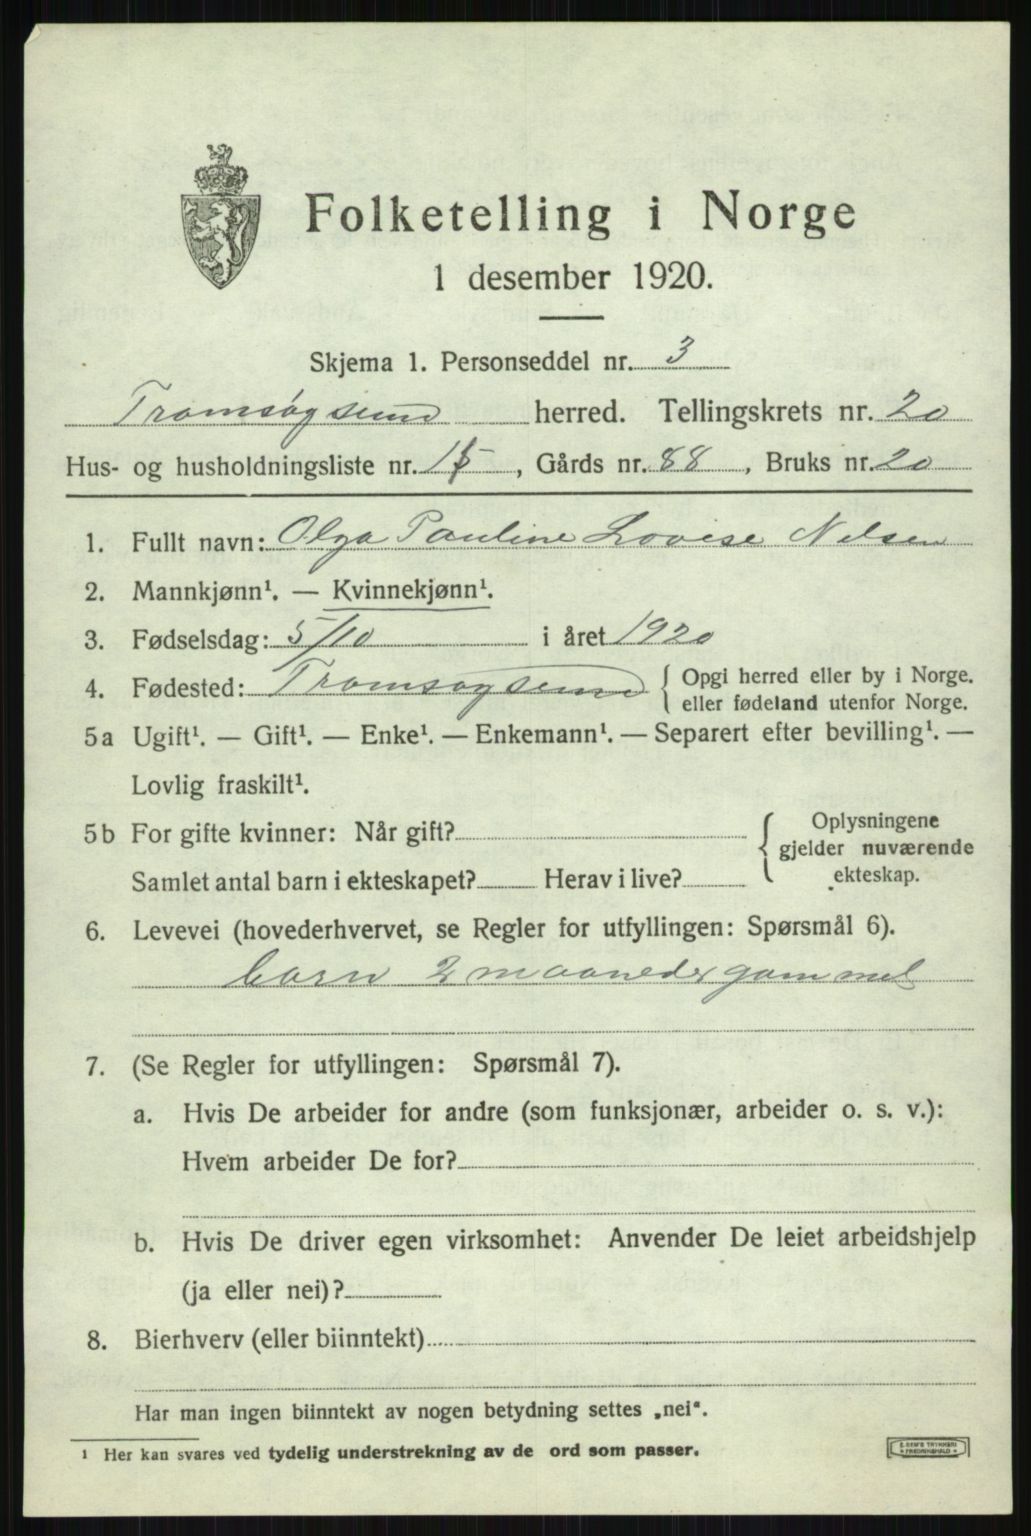 Folketelling i Norge
1 desember 1920.
Skjema 1. Personseddel nr. 3
Tromsøysund herred. Tellingskrets nr. 20
Hus- og husholdningsliste nr. 15, Gårds nr. 88, Bruks nr. 20
1. Fullt navn: Olga Pauline Lovise Nilsen
2. Mannkjønn¹. — Kvinnekjønn¹.
3. Fødselsdag: 5/10 i året 1920
4. Fødested: Tromsøysund { Opgi herred eller by i Norge.
eller fødeland utenfor Norge.
5a Ugift¹. — Gift¹. — Enke¹. — Enkemann¹. — Separert efter bevilling¹. —
Lovlig fraskilt¹.
5b For gifte kvinner: Når gift?
Samlet antal barn i ekteskapet? Herav i live?
{ Oplysningene
gjelder nuværende
ekteskap.
6. Levevei (hovederhvervet, se Regler for utfyllingen: Spørsmål 6).
barn 2 maaneder gammel
7. (Se Regler for utfyllingen: Spørsmål 7).
a. Hvis De arbeider for andre (som funksjonær, arbeider o. s. v.):
Hvem arbeider De for?
b. Hvis De driver egen virksomhet: Anvender De leiet arbeidshjelp
(ja eller nei)?
8. Bierhverv (eller biinntekt)
Har man ingen biinntekt av nogen betydning settes „nei“.
¹ Her kan svares ved tydelig understrekning av de ord som passer.